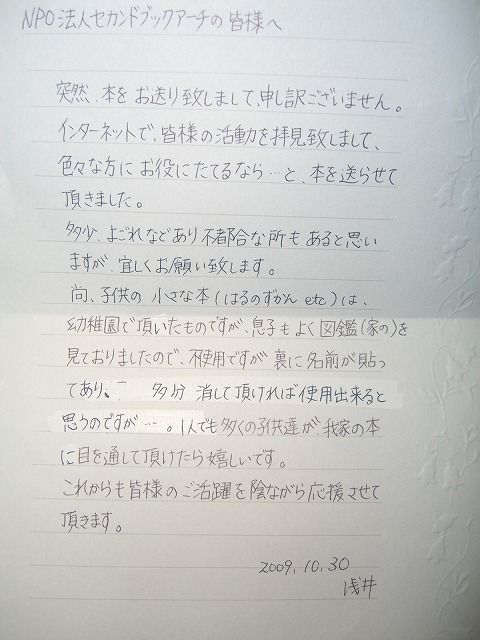 NPO法人セカンドブックアーチの皆様へ
突然、本をお送り致しまして、申し訳ございません。
インターネットで、皆様の活動を拝見致しまして、
色々な方にお役にたてるなら…と、本を送らせて
頂きました。
多少、よごれなどあり不都合な所もあると思い
ますが、宜しくお願い致します。
尚、子供の小さな本(はるのずかんetc)は、
幼稚園で頂いたものですが、息子もよく図鑑(家の)を
見ておりましたので、不使用ですが裏に名前が貼っ
てあり、多分消して頂ければ使用出来ると
思うのですが…。1人でも多くの子供達が、我家の本
に目を通して頂けたら嬉しいです。
これからも皆様のご活躍を陰ながら応援させて
頂きます。
2009.10.30
浅井